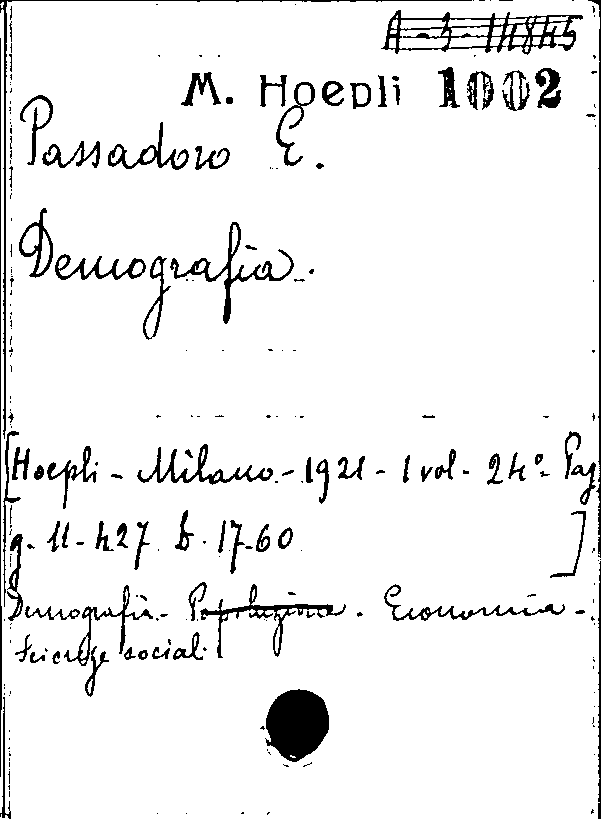 A-3-14845
M. Hoepli 1002
Passadoro E.
Demografia.
[Hoepli - Milano - 1921 - 1 vol - 24° - Pag
g. 11-427 b. 17.60 ]
Demografia - Popolazione. Economia -
Scienze sociali